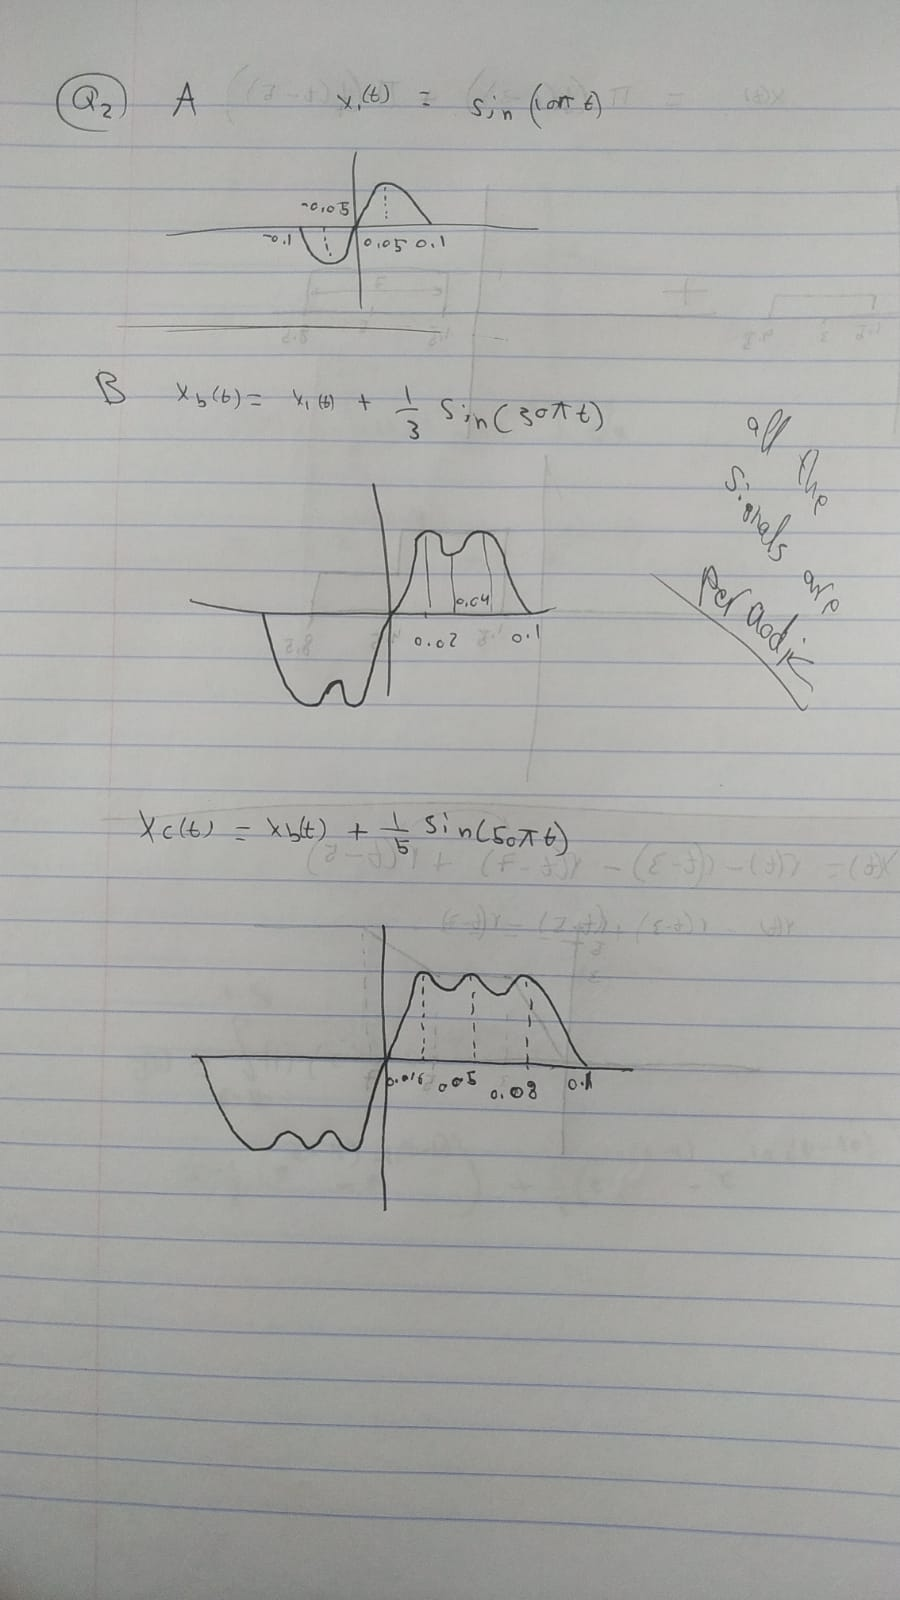 Q2 A x1(t) = sin(10π t)
-0.05
-0.1 0.05 0.1
B xb(t) = x1(t) + 1/3 Sin(30πt)
all the
signals are
Peraodic
0.04
0.02 0.1
xc(t) = xb(t) + 1/5 Sin(50πt)
0.016 0.05 0.08 0.1